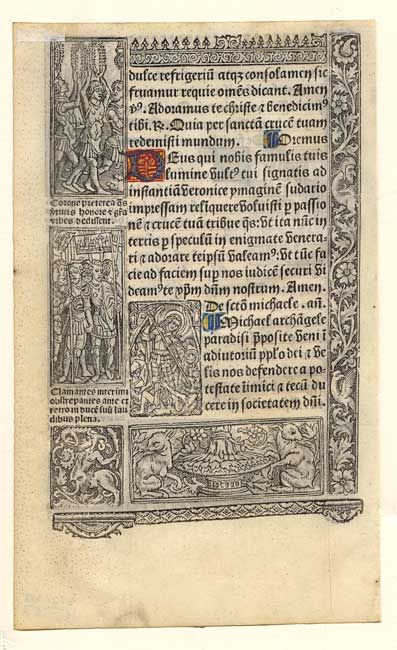 dulce refrigeriū atqz consolamen sic
fruamur requie om̄es dicant. Amen
v̇s. Adoramus te christe & benedicim⁹
tibi. R. Quia per sanctā crucē tuam
redemisti mundum. Oremus
DEus qui nobis famulis tuis
lumine vult⁹ tui signatis ad
instantiā veronice ymaginē sudario
impressam relinquere voluisti p̱ passio
nē & crucē tuā tribue q̄s: vt ita nūc in
terris p̱ speculū in enigmate venera
ri & adorare teipsū valeam⁹: vt tūc fa
cie ad faciem sup̱ nos iudicē securi vi
deam⁹ te dn̄m nostrum. Amen.
De sctō michaele. an̄.
Michael archāgele
paradisi p̄posite veni ī
adiutoriū pp̄lo dei & ve
lis nos defendere a po-
testate & tecū du
cere in societatem dn̄i.
Corone preterea
honore &
Clamantes interim
obstrepantes ante et
retro in ducē suū lau
dibus plena.